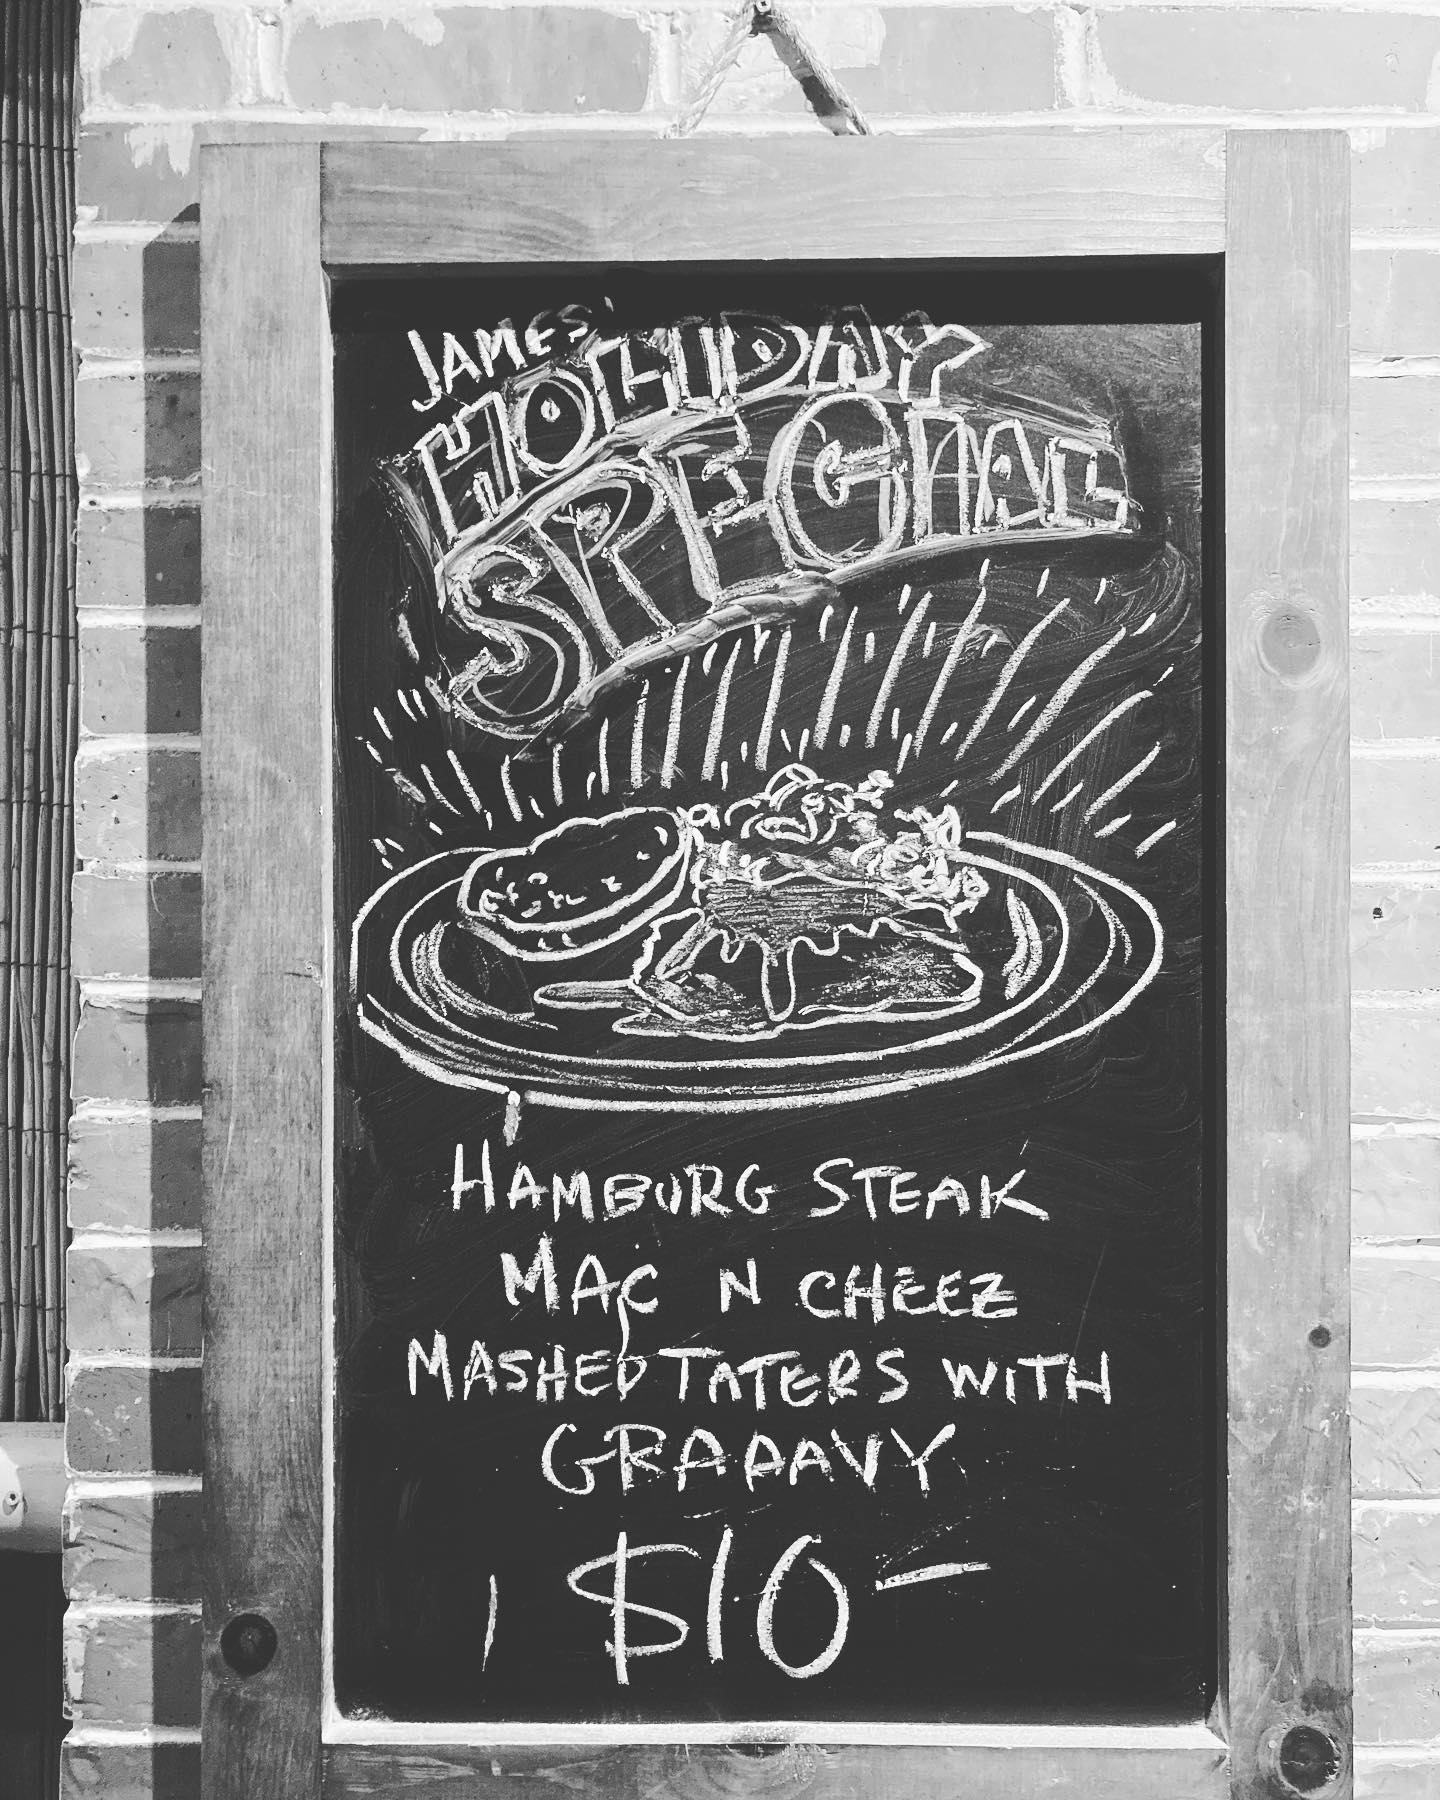 JAMES'
HOLIDAY
SPECIAL
HAMBURG STEAK
MAC N CHEEZ
MASHED TATERS WITH
GRAAAVY
$10-